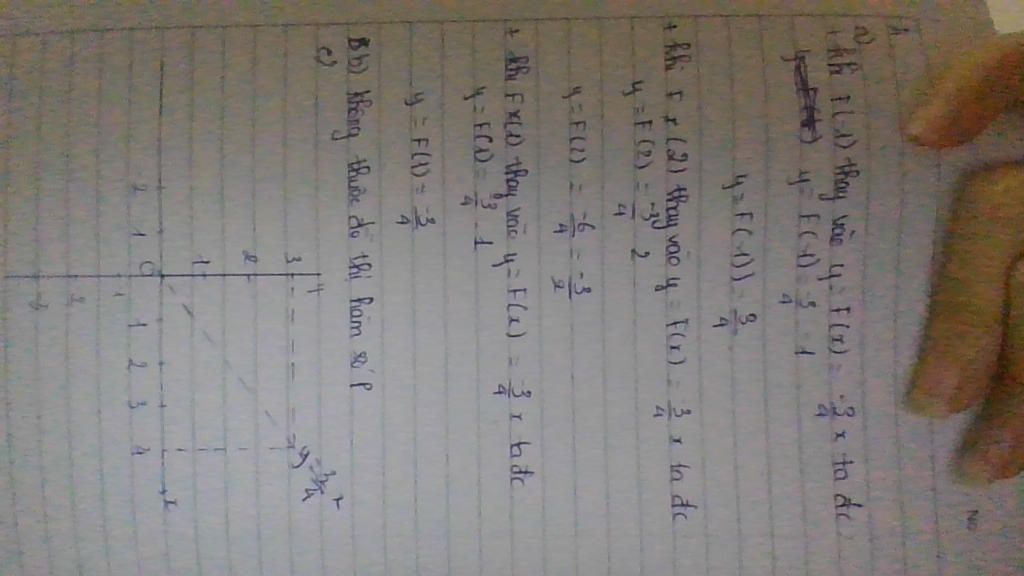 a)
+ khi F(-1) thay vào y = F(x) = -3/4 x ta đc
y = F(-1) = 3/4 . 1
y = F(-1) = 3/4
+ khi F x (2) thay vào y = F(x) = 3/4 x ta đc
y = F(2) = -3/4 2
y = F(2) = -6/4 = -3/2
+ khi F x(1) thay vào y = F(x) = -3/4 x ta đc
y = F(1) = 3/4 . 1
y = F(1) = -3/4
b) không thuộc đồ thị hàm số P
c)
y
3
2
1
2 1 0 1 2 3 4 x
1
2
3